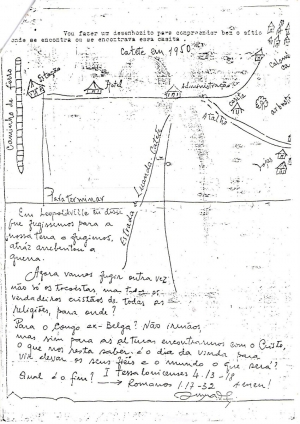 Vou fazer um desenhozito para compreender bem o sítio
onde se encontra ou se encontrava essa casita.
Catete em 1950
Caminho de ferro
Estação
Hotel
Administração
Catete
Atalho
Estrada de Luanda Catete
Para terminar
Em Leopoldville eu disse
que fugissemos para a
nossa terra e fugimos,
atráz arrebentou a
guerra.
Agora vamos fugir outra vez
não só os tocoistas mas todos os
verdadeiros cristãos de todas as
religiões, para onde?
Para o Congo ex-Belga? Não irmãos,
mas sim para as alturas encontrarmos com o Cristo,
o que nos resta saber, é o dia da vinda para
vir elevar os seus fieis e o mundo o que será?
Qual é o fim? I Tessalonicenses 4.13-18
Romanos 1.17-32